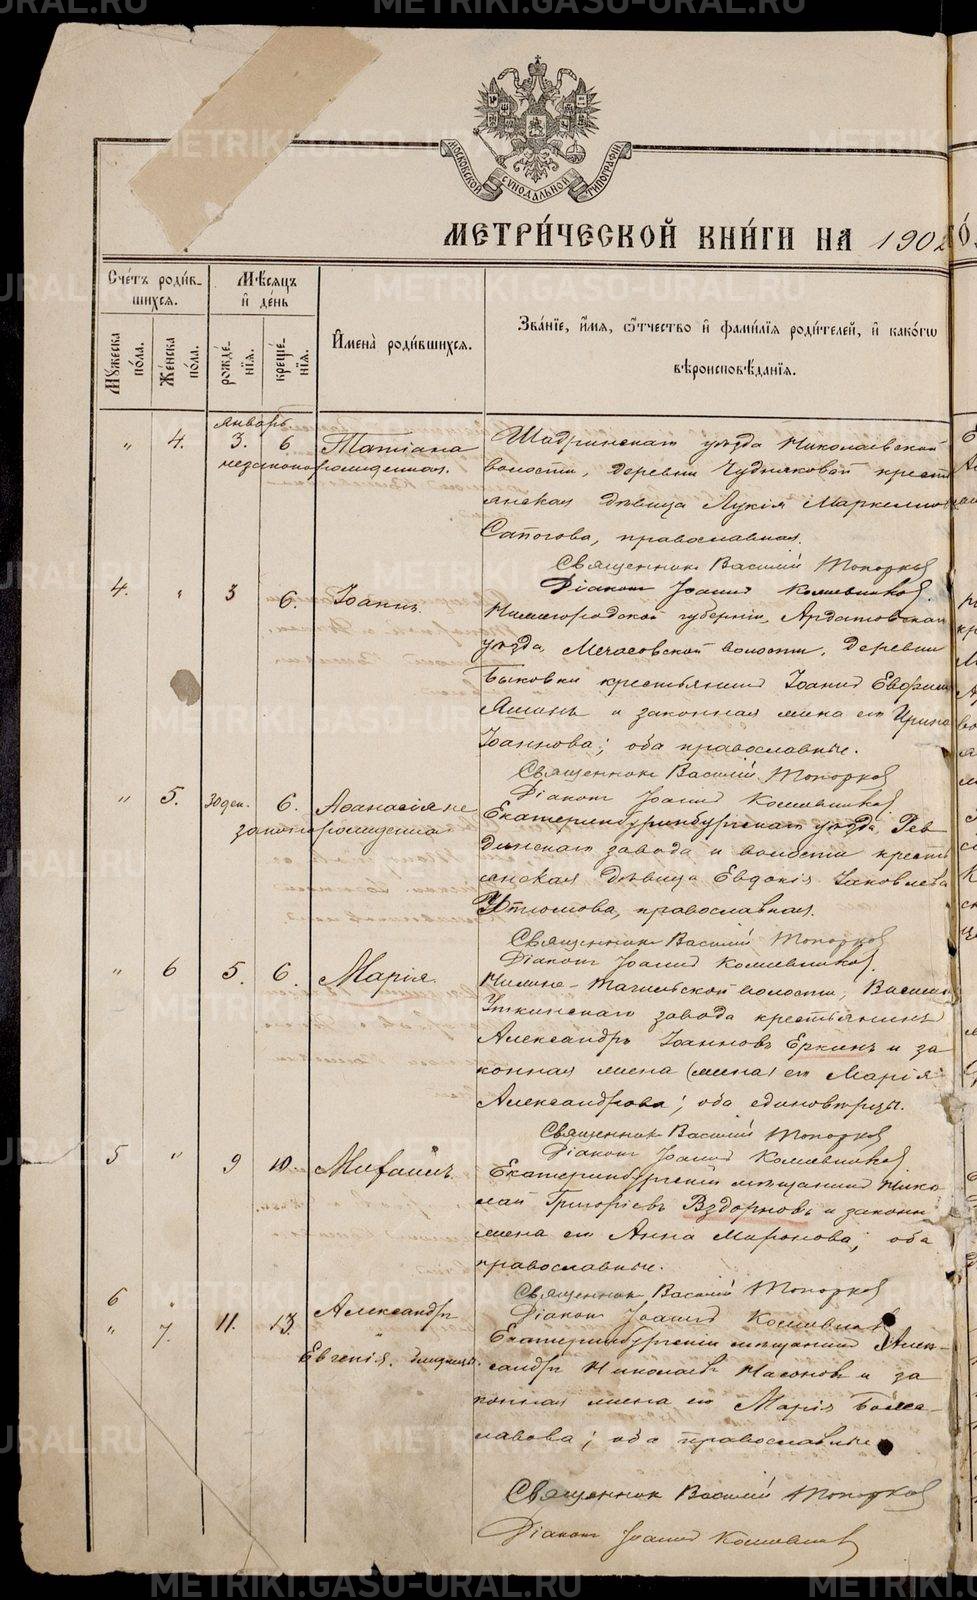 МОСКОВСКОЙ СѴНОДАЛЬНОЙ ТИПОГРАФІИ
МЕТРИ́ЧЕСКОЙ КНИ́ГИ НА 1902 ГО́Д
Сче́тъ роди́в-
шихся.
Мѣсяцъ
и҆ де́нь
Му́жеска по́ла.
Же́нска по́ла.
рожде́нїя.
креще́нїя.
И҆мена̀ роди́вшихся.
Зва́нїе, и҆́мя, ѻ҆́тчество и҆ фами́лїя роди́телей, и҆ како́гѡ
вѣроисповѣ́данїя.
январь
„ 4. 3. 6 Татіана
незаконорожденная.
Шадринскаго уѣзда Николаевской
волости, деревни Чудняковой крест
янская дѣвица Лукія Маркеллов
Сапогова, православная.
Священник Василій Топорков
Діакон Іоанн Кошевников.
4. „ 3 6. Іоаннъ.
Нижегородской губерніи, Ардатовскаго
уѣзда, Мечасовской волости, деревни
Быковки крестьянин Іоанн Евфим
Яшинъ и законная жена его Ирина
Іоаннова; оба православные.
Священник Василій Топорков
Діакон Іоанн Кошевников.
„ 5. 30 дек. 6. Аѳанасія не
законорожденна
Екатеринбургскаго уѣзда, Рев
динскаго завода и волости крестья
янская дѣвица Евдокія Іаковлева
Утюмова, православная.
Священник Василій Топорков
Діакон Іоанн Кошевников.
„ 6 5. 6. Марія.
Нижне-Тагильской волости, Висимо
Уткинскаго завода крестьянинъ
Александръ Іоанновъ Еркинъ и за
конная жена (жена) его Марія
Александрова; оба единовѣрцы.
Священник Василій Топорков
Діакон Іоанн Кошевников
5 „ 9 10. Михаилъ.
Екатеринбургскій мѣщанин Нико
лай Григоріевъ Вздорновъ и законн
жена его Анна Миронова; оба
православные.
Священник Василій Топорков
Діакон Іоанн Кошевников
6 „ Александръ
„ 7. 11. 13. Евгенія. близнецы.
Екатеринбургскій мѣщанин Алек-
сандръ Николаевъ Насоновъ и за
конная жена его Марія Боле-
лавова; оба православные
Священник Василій Топорков
Діакон Іоанн Кошевников
METRIKI.GASO-URAL.RU